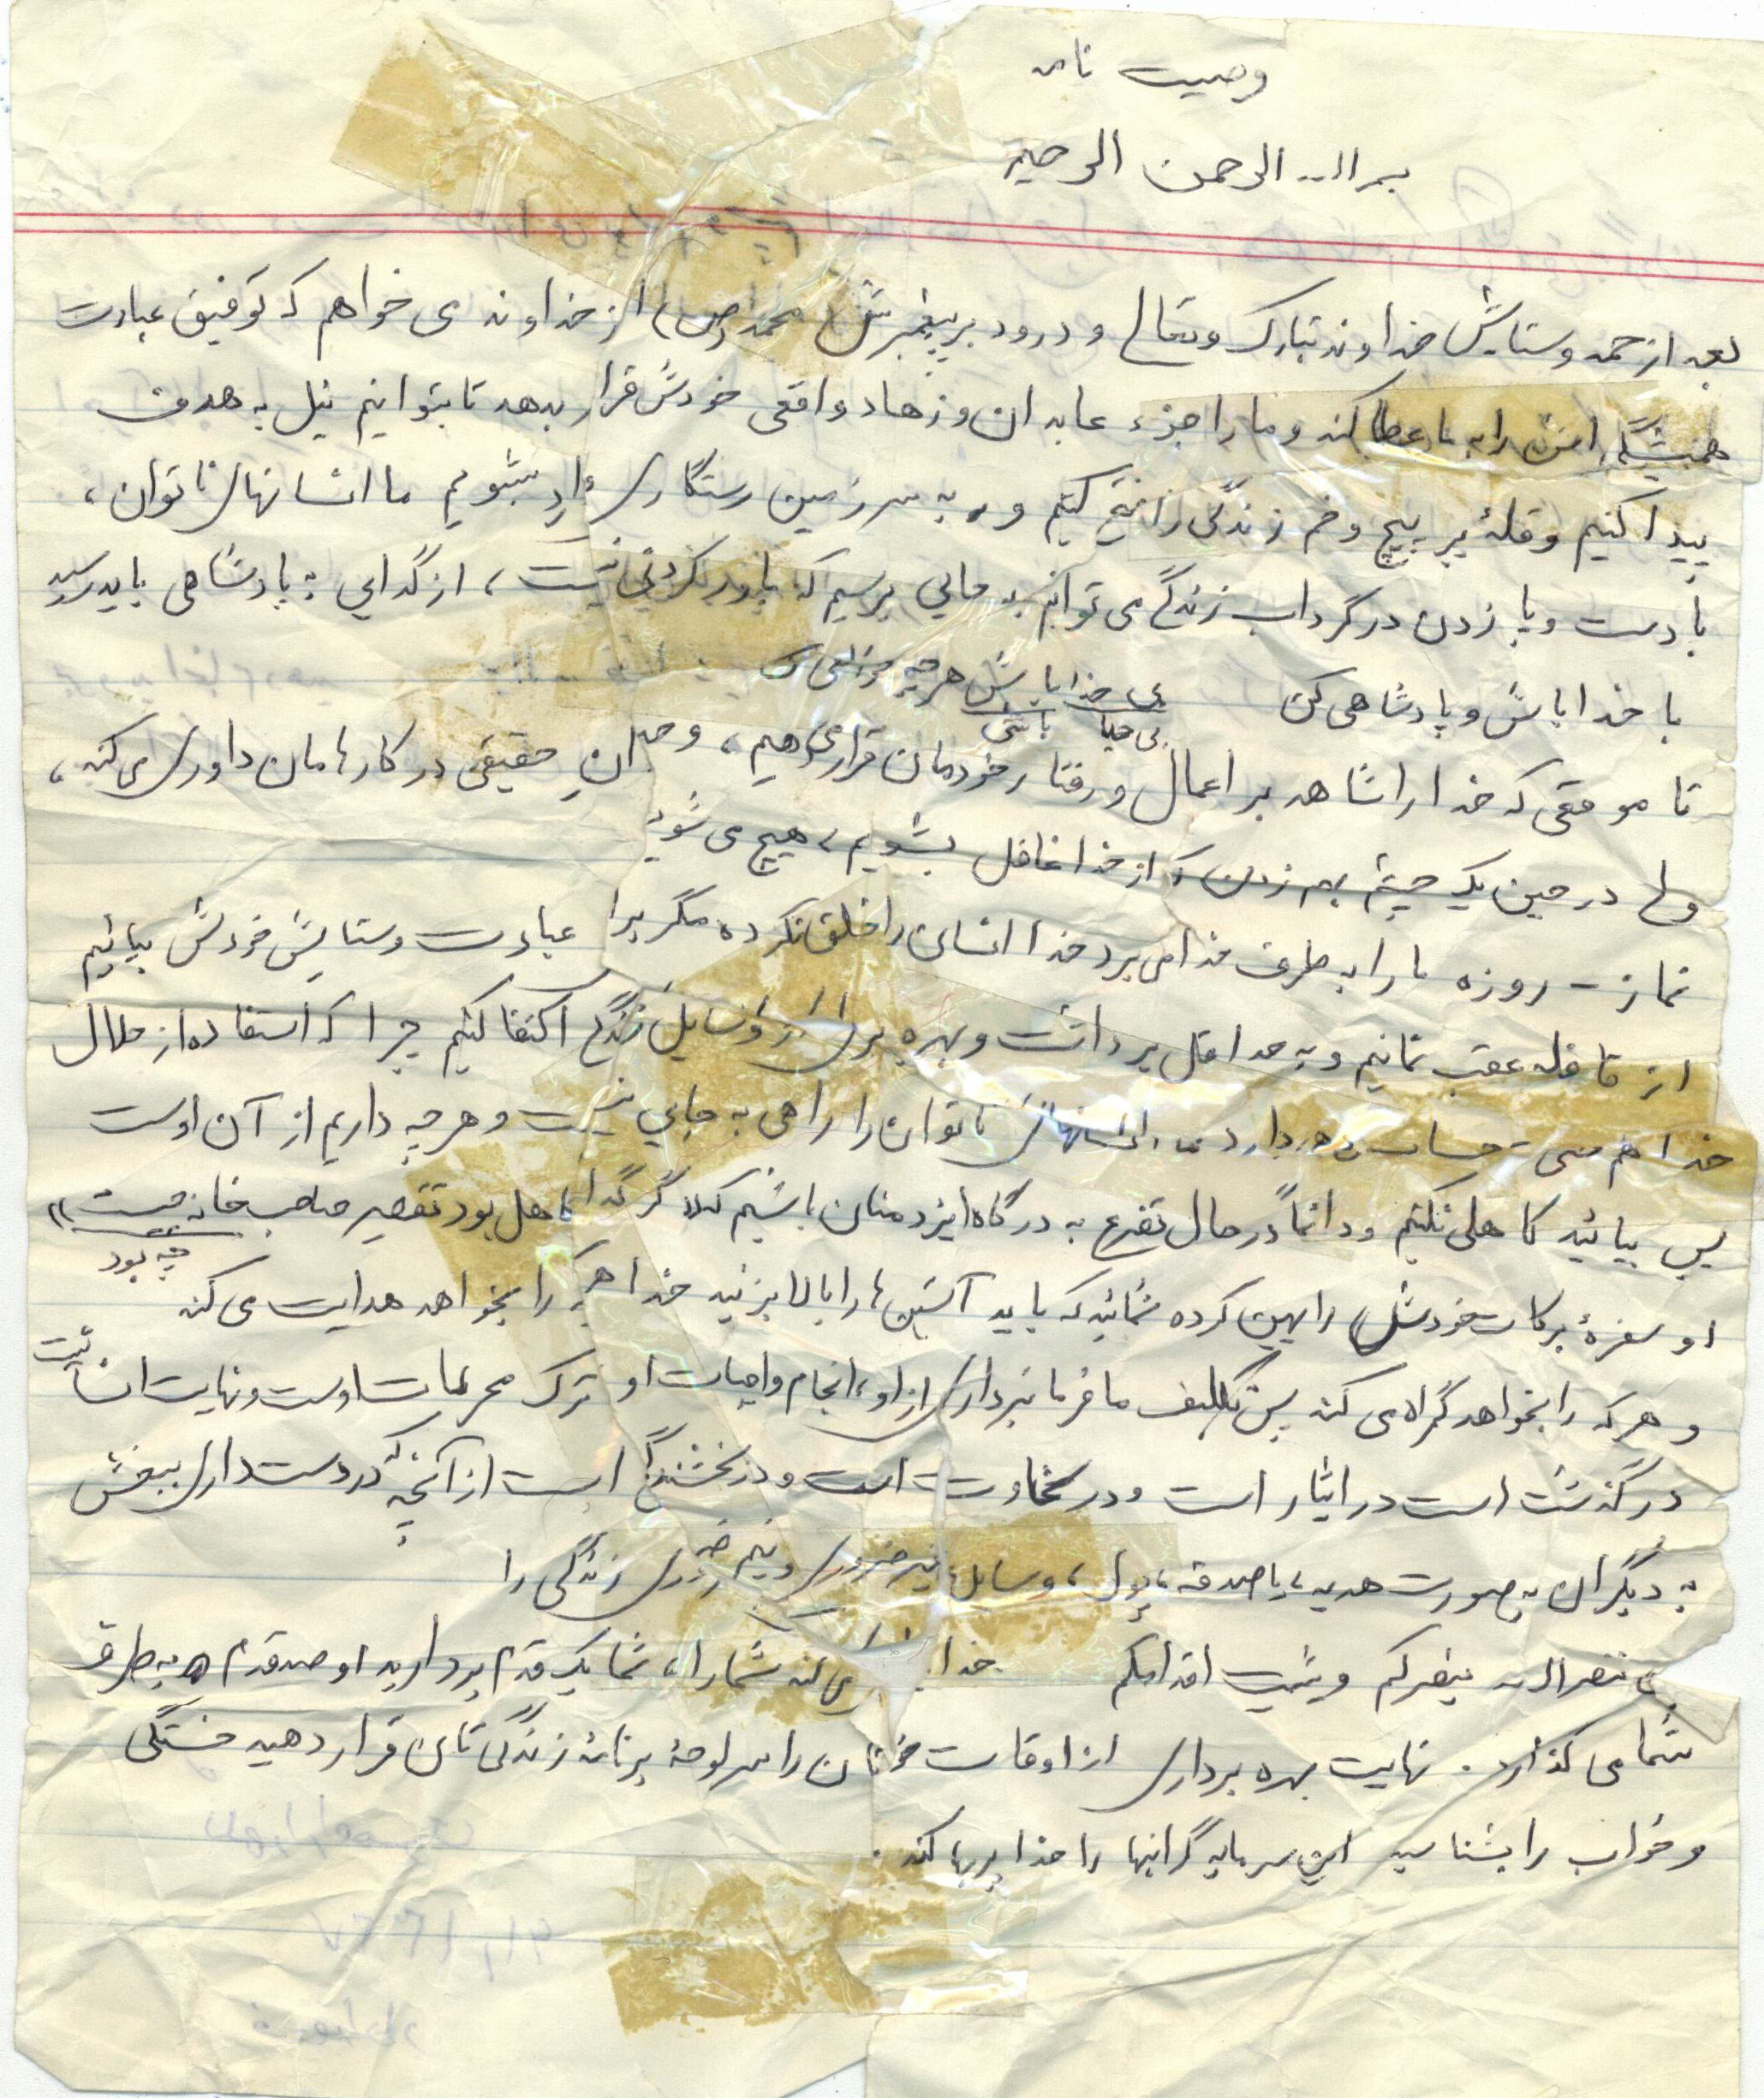 وصیت نامه
بسم ا... الرحمن الرحیم
بعد از حمد و ستایش خداوند تبارک و تعالی و درود بر پیغمبرش محمد (ص) از خداوند می خواهم که توفیق عبادت
همیشگی اش را به ما عطا کند و ما را جزء عابدان و زهاد واقعی خودش قرار بدهد تا بتوانیم نیل به هدف
پیدا کنیم و قلهٔ پر پیچ و خم زندگی را فتح کنیم و به سرزمین رستگاری وارد بشویم ما انسانهای ناتوان،
با دست و پا زدن در گرداب زندگی می توانیم به جایی برسیم که باور نکردنی نیست، از گدایی به پادشاهی باید رسید
با خدا باش و پادشاهی کن بی خدا باش هر چه خواهی کن
بی حیا باشی
تا موقعی که خدا را شاهد بر اعمال و رفتار خودمان قرار می دهیم، وجدانِ حقیقی در کارهامان داوری می کند،
ولی در حین یک چشم بهم زدن که از خدا غافل بشویم، هیچ می شود
نماز - روزه ما را به طرف خدا می برد خدا انسان را خلق نکرده مگر برا عبادت و ستایش خودش بیائیم
از قافله عقب نمانیم و به حداقل برداشت و بهره برداری از وسایل زندگی اکتفا کنیم چرا که استفاده از حلال
خدا هم حساب دارد ما انسانهای ناتوان را راهی به جایی نیست و هر چه داریم از آن اوست
پس بیائید کاهلی نکنیم و دائماً در حال تضرع به درگاه ایزد منان باشیم که گر گدا کاهل بود تقصیر صاحب خانه چیست»
چه بود
او سفرهٔ برکات خودش را پهن کرده شمائید که باید آستین ها را بالا بزنید خدا هر که را بخواهد هدایت می کند
و هر که را بخواهد گمراه می کند پس تکلیف ما فرمانبرداری از او، انجام واجبات او و ترک محرمات اوست و نهایت انسانیت
در گذشت است در ایثار است و در سخاوت است و در بخشندگی است از آنچه که در دست داری ببخش
به دیگران به صورت هدیه، یا صدقه، پول، وسایل غیر ضروری و نیم ضروری زندگی را
ان تنصرالله ینصرکم و یثبت اقدامکم خدا یاری می کند شما را، شما یک قدم بردارید او صد قدم به طرف
شما می گذارد. نهایت بهره برداری از اوقات خودتان را سرلوحهٔ برنامهٔ زندگی تان قرار دهید خستگی
و خواب را بشناسید این سرمایه گرانبها را خدا پربها کند.